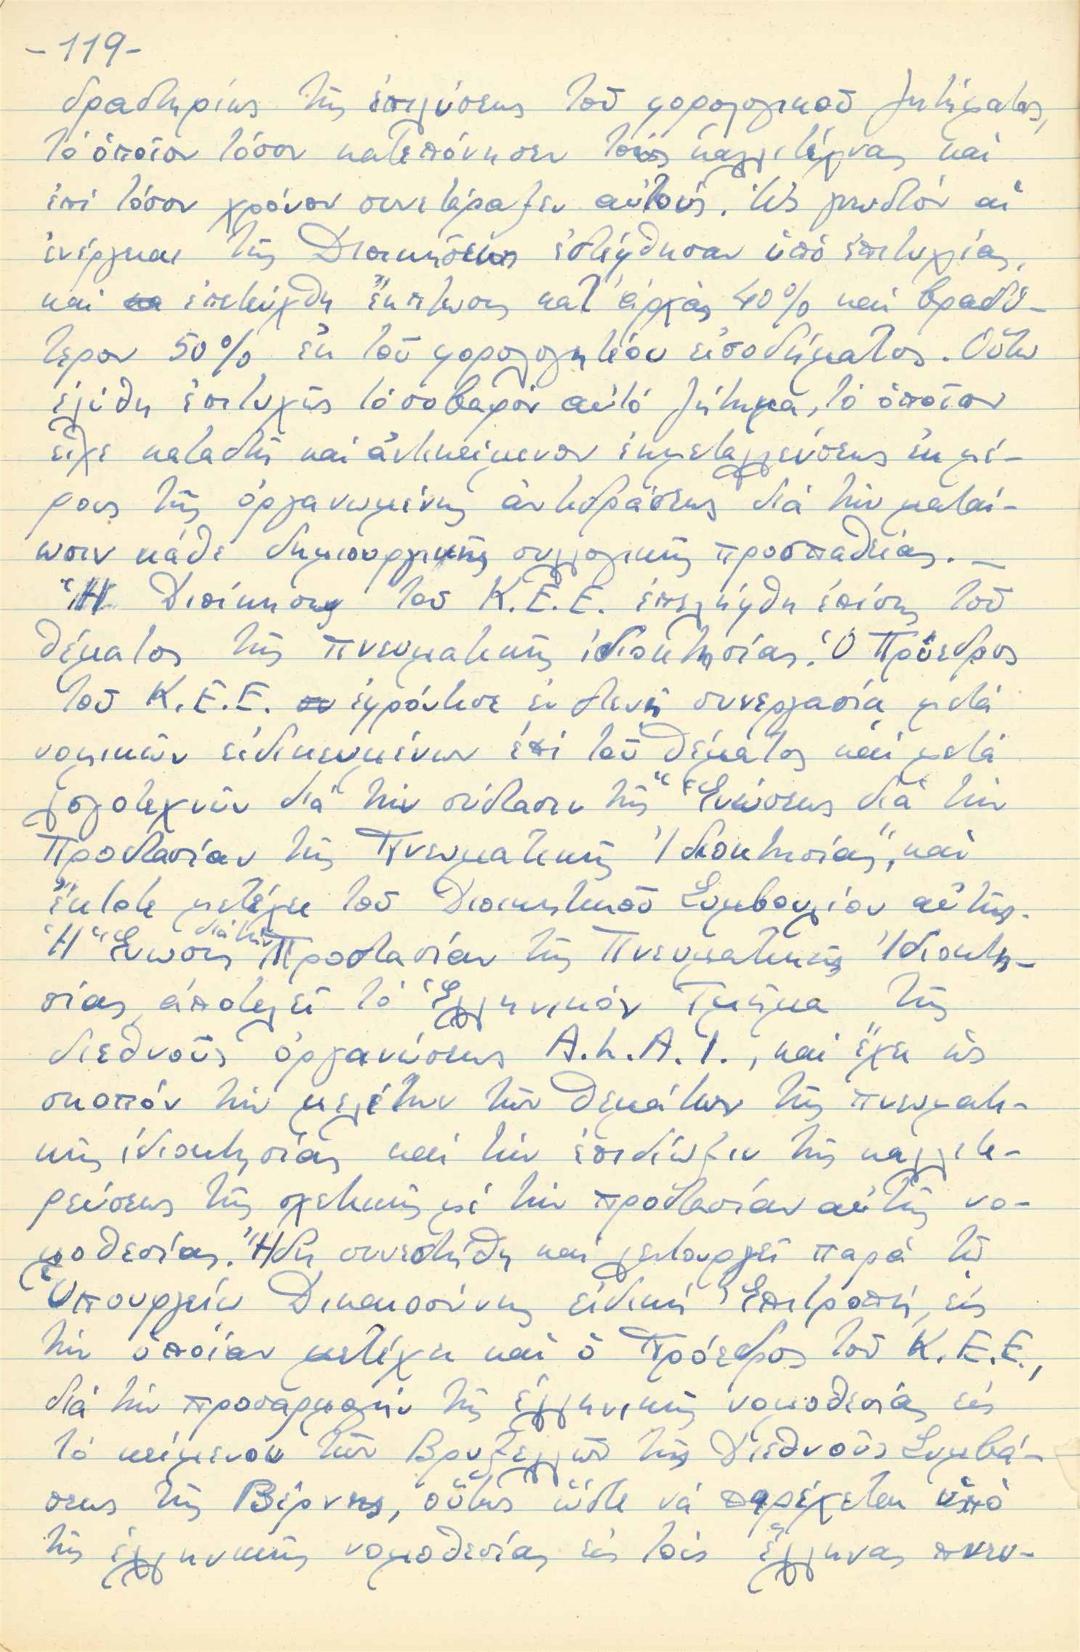 -119-
δραστηρίως τῆς ἐπιλύσεως τοῦ φορολογικοῦ ζητήματος,
τὸ ὁποῖον τόσον κατεπόνησεν τοὺς καλλιτέχνας καὶ
ἐπὶ τόσον χρόνον συνετάραξεν αὐτούς. Ὡς γνωστόν αἱ
ἐνέργειαι τῆς Διοικήσεως ἐστέφθησαν ὑπὸ ἐπιτυχίας,
καὶ ἐπετεύχθη ἔκπτωσις κατ' ἀρχὰς 40% καὶ βραδύ-
τερον 50% ἐκ τοῦ φορολογητέου εἰσοδήματος. Οὕτω
ἐλύθη ἐπιτυχῶς τὸ σοβαρόν αὐτό ζήτημα, τὸ ὁποῖον
εἶχε καταστῆ καὶ ἀντικείμενον ἐκμεταλλεύσεως ἐκ μέ-
ρους τῆς ὀργανωμένης ἀντιδράσεως διά τὴν ματαί-
ωσιν κάθε δημιουργικῆς συλλογικῆς προσπαθείας. _
Ἡ Διοίκησις τοῦ Κ.Ε.Ε. ἐπελήφθη ἐπίσης τοῦ
θέματος τῆς πνευματικῆς ἰδιοκτησίας. Ὁ Πρόεδρος
τοῦ Κ.Ε.Ε. ἐφρόντισε ἐν στενῇ συνεργασίᾳ μετά
νομικῶν εἰδικευμένων ἐπὶ τοῦ θέματος καὶ μετά
λογοτεχνῶν διά τὴν σύστασιν τῆς "Ἑνώσεως διά τὴν
Προστασίαν τῆς Πνευματικῆς Ἰδιοκτησίας", καὶ
ἔκτοτε μετέχει τοῦ Διοικητικοῦ Συμβουλίου αὐτῆς.
Ἡ "Ἕνωσις διά τὴν Προστασίαν τῆς Πνευματικῆς Ἰδιοκτη-
σίας ἀποτελεῖ τὸ Ἑλληνικόν Τμῆμα τῆς
διεθνοῦς ὀργανώσεως A.L.A.I., καὶ ἔχει ὡς
σκοπόν τὴν μελέτην τῶν θεμάτων τῆς πνευματι-
κῆς ἰδιοκτησίας καὶ τὴν ἐπιδίωξιν τῆς καλλιτε-
ρεύσεως τῆς σχετικῆς μέ τὴν προστασίαν αὐτῆς νο-
μοθεσίας. Ἤδη συνεστήθη καὶ λειτουργεῖ παρά τῷ
Ὑπουργείῳ Δικαιοσύνης εἰδική Ἐπιτροπή, εἰς
τὴν ὁποίαν μετέχει καὶ ὁ Πρόεδρος τοῦ Κ.Ε.Ε.,
διά τὴν προσαρμογήν τῆς ἑλληνικῆς νομοθεσίας εἰς
τὸ κείμενον τῶν Βρυξελλῶν τῆς Διεθνοῦς Συμβά-
σεως τῆς Βέρνης, οὕτως ὥστε νά παρέχεται ὑπό
τῆς ἑλληνικῆς νομοθεσίας εἰς τούς ἕλληνας πνευ-